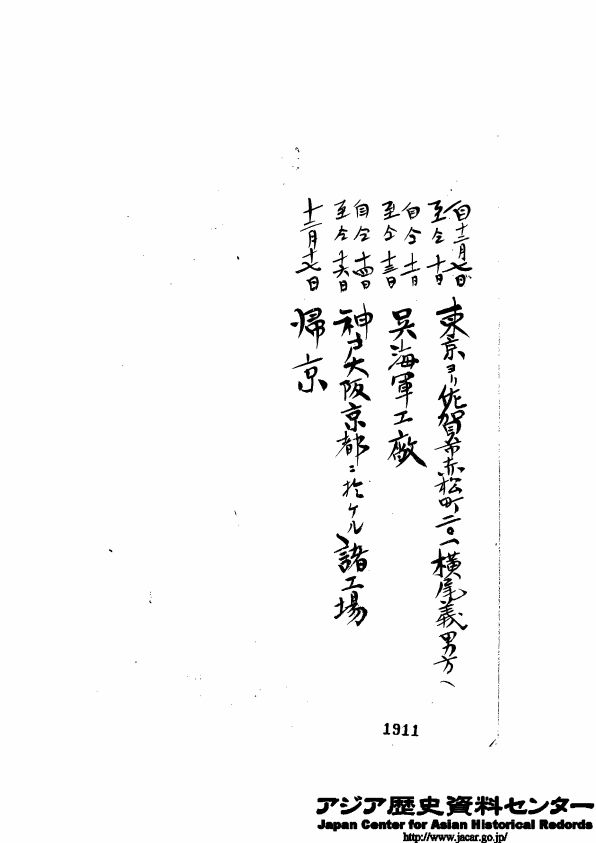 自十二月七日
至仝十日
東京ヨリ佐賀市赤松町二〇一横尾義男方ヘ
自仝十一日
至仝十三日
呉海軍工廠
自仝十四日
至仝十六日
神戸大阪京都ニ於ケル諸工場
十二月十七日
帰京
1911
アジア歴史資料センター
Japan Center for Asian Historical Redords
http://www.jacar.go.jp/